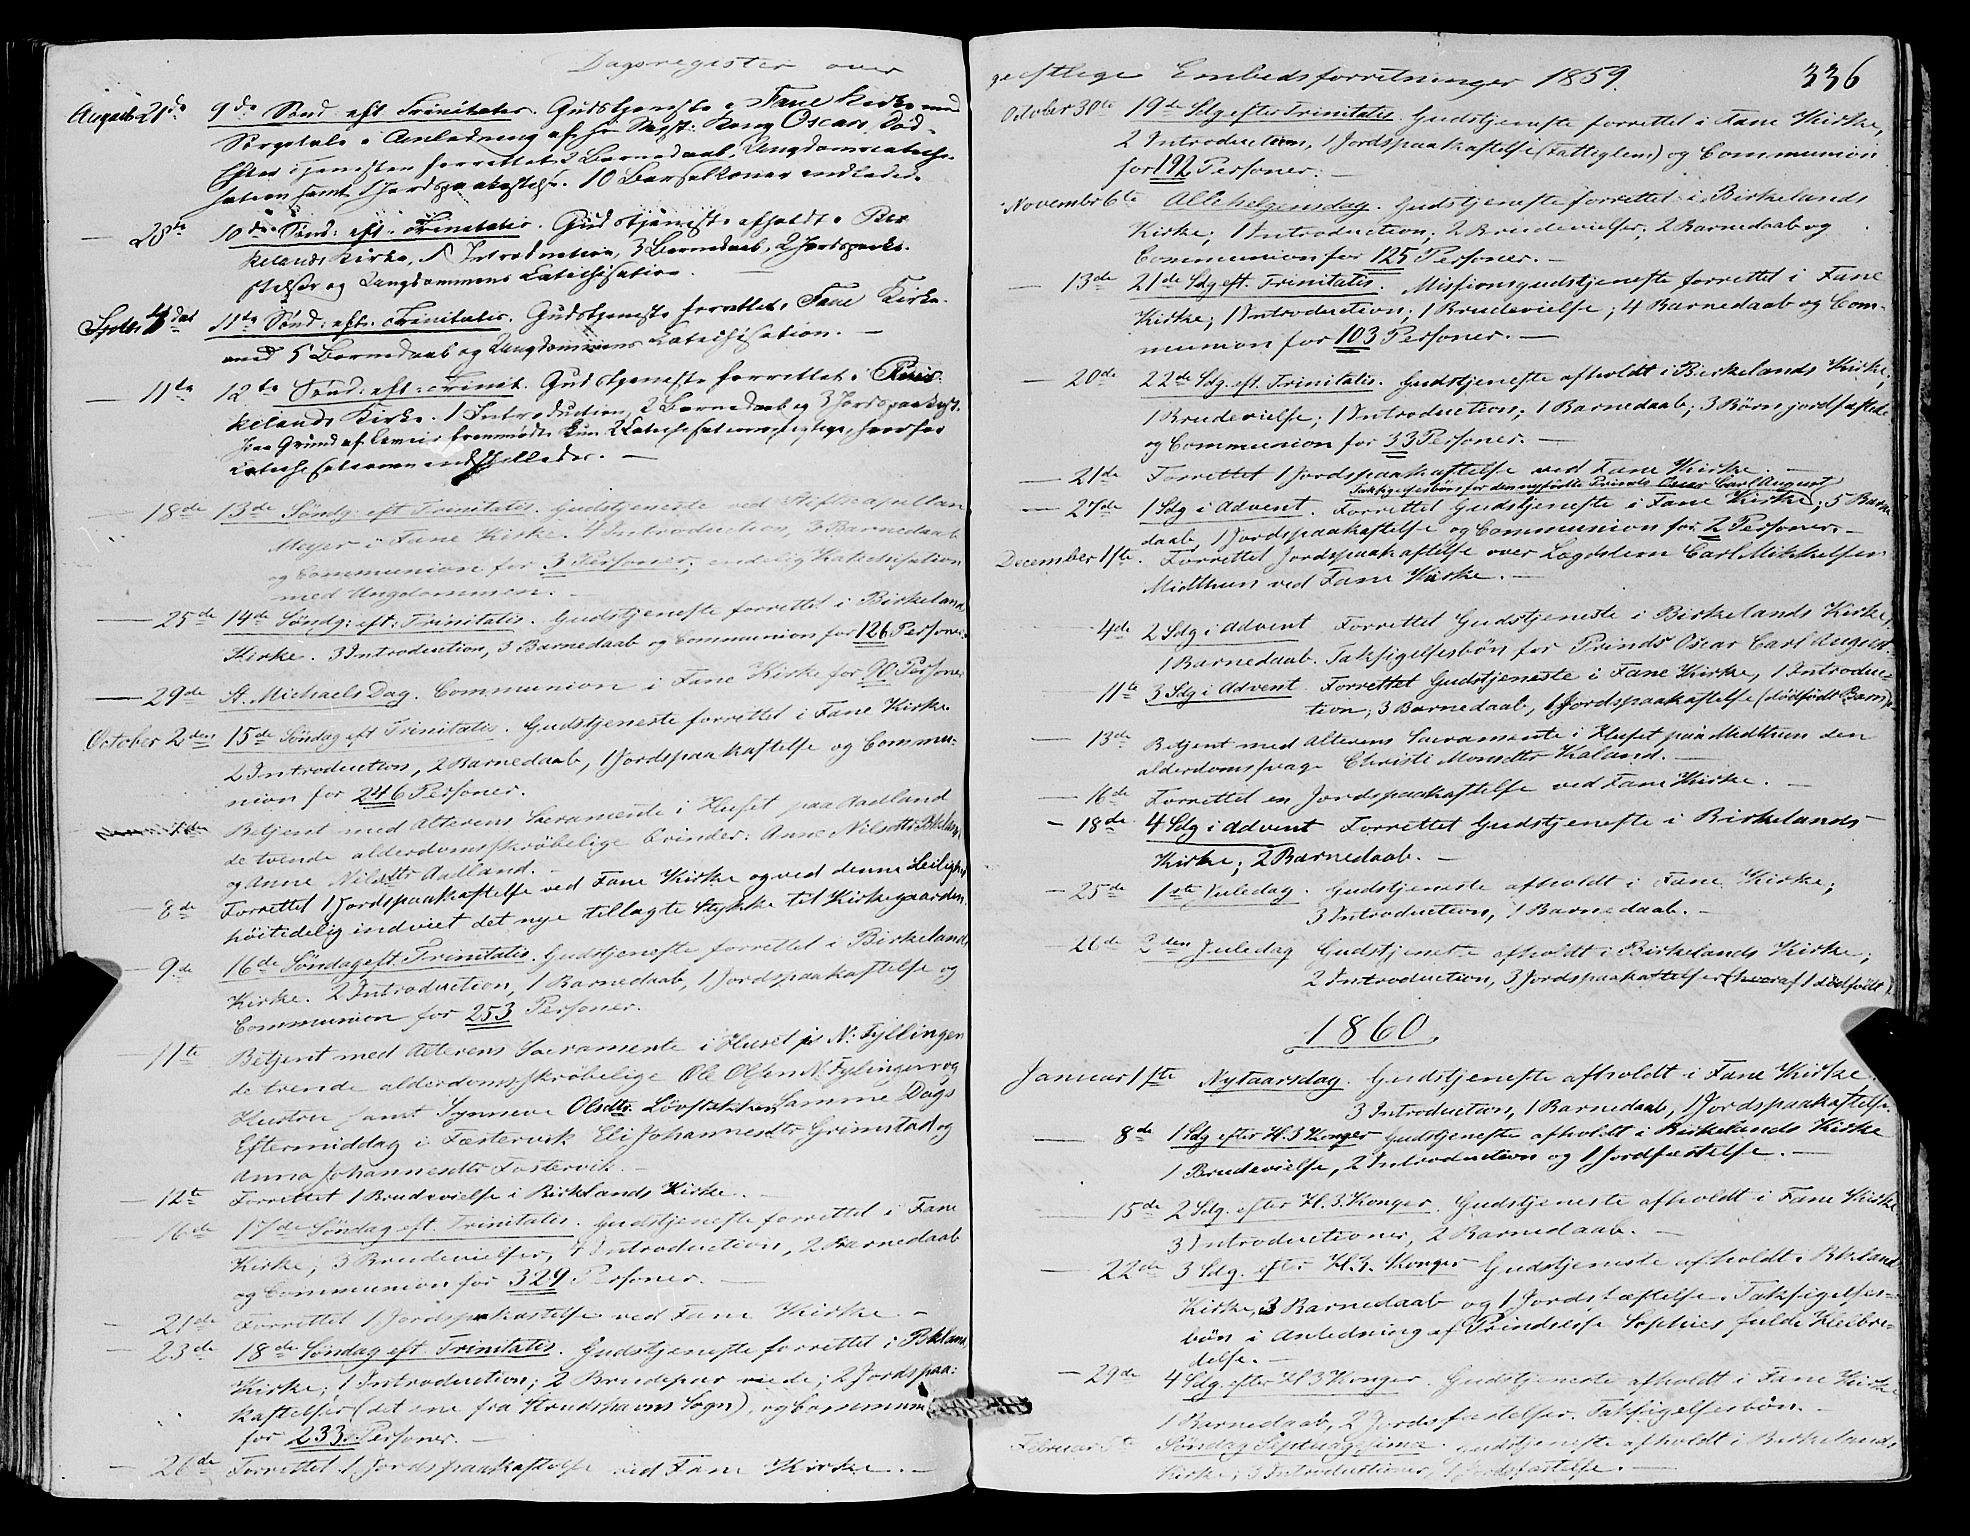 Dagsregister over
August 21de 9de Sønd. eft. Trinitatis. Gudstjeneste i Fane Kirke med
Sørgetale i Anledning af H. Majst: Kong Oscars Død.
Efter Tjenesten forrettet 2 Barnedaab, Ungdomscatechi-
sation samt 1 Jordspaakastelse. 10 Barselkoner indledet.
— 28de 10de Sønd: eft: Trinitatis. Gudstjeneste afholdt i Bir
kelands Kirke, 1 Introduction, 3 Barnedaab, 2 Jordspaaka-
stelser og Ungdommens Catechisation.
Septr. 4de 11te Sønd: eft: Trinitatis. Gudstjeneste forrettet i Fane Kirke
med 5 Barnedaab og Ungdommens Catechisation. —
— 11te 12te Sønd: eft: Trinit. Gudstjeneste forrettet i Bir
kelands Kirke. 1 Introduction, 2 Barnedaab og 3 Jordspaakast.
Paa Grund af fremmødte kun 2 Catechisationspligtige, hvorfor
Catechisationen indstilledes. —
— 18de 13de Søndg: eft Trinitatis. Gudstjeneste ved Stiftscapellan
Meyer i Fane Kirke. 4 Introduction, 3 Barnedaab
og Communion for 3 Personer; endelig Katechisation
med Ungdommen. —
— 25de 14de Søndg: eft: Trinitatis. Gudstjeneste forrettet i Birkeland
Kirke. 3 Introduction, 3 Barnedaab og Communion for 126 Personer.
— 29de St. Michaels Dag. Communion i Fane Kirke for 90 Personer
October 2den 15de Søndag eft Trinitatis. Gudstjeneste forrettet i Fane Kirke.
2 Introduction, 2 Barnedaab, 1 Jordspaakastelse og Commu-
nion for 246 Personer.
Betjent med Alterens Sacramente i Huset paa Aadland
de tvende alderdomsskrøbelige Qvinder: Anne Nilsdtr Bkeland
og Anne Nilsdtr Aadland. —
— 8de Forrettet 1 Jordspaakastelse ved Fane Kirke og ved denne Leilighed
høitidelig indviet det nye tillagte Stykke til Kirkegaarden.
— 9de 16de Søndag eft. Trinitatis. Gudstjeneste forrettet i Birkelands
Kirke. 2 Introduction, 1 Barnedaab, 1 Jordspaakastelse og
Communion for 253 Personer.
— 11te Betjent med Alterens Sacramente i Huset p. N: Fyllingen
de trende alderdomsskrøbelige Ole Olsen N. Fylingen og
Hustru samt Synneve Olsdtr Løvstakken, Samme Dags
Eftermiddag i Fæstervik Eli Johannesdtr Grimstad og
Anna Johannesdtr Fæstervik. —
— 12te Forrettet 1 Brudevielse i Birkelands Kirke. —
16de 17de Søndag eft. Trinitatis. Gudstjeneste forrettet i Fane
Kirke, 3 Brudevielser, 4 Introduction, 2 Barnedaab
og Communion for 329 Personer. —
— 21de Forrettet 1 Jordspaakastelse ved Fane Kirke. —
— 23de 18de Søndag eft. Trinitatis. Gudstjeneste forrettet i Bkland
Kirke; 1 Introduction; 2 Brudepar viede; 2 Jordspaa:
kastelser (det ene fra Strudshavns Sogn), og Communion
for 233 Personer. —
— 26de Forrettet 1 Jordspaakastelse ved Fane Kirke. —
geistlige Embedsforretninger 1859. 336
October 30te 19de Sdg efter Trinitatis. Gudstjeneste forrettet i Fane Kirke,
2 Introduction, 1 Jordspaakastelse (Fattiglem) og Communion
for 192 Personer. —
November 6te Allehelgensdag. Gudstjeneste forrettet i Birkelands
Kirke; 1 Introduction; 2 Brudevielser; 2 Barnedaab og
Communion for 125 Personer. —
— 13de 21de Sdg eft. Trinitatis. Missionsgudstjeneste forrettet i Fane
Kirke; 1 Introduction; 1 Brudevielse; 4 Barnedaab og Com-
munion for 103 Personer. —
— 20de 22de Sdg. eft. Trinitatis. Gudstjeneste afholdt i Birkelands Kirke;
1 Brudevielse; 1 Introduction; 1 Barnedaab; 3 Børn jordfæstede
og Communion for 33 Personer. —
— 21de Forrettet 1 Jordspaakastelse ved Fane Kirke. —
Taksigelsesbøn for den nyfødte Prinds Oscar Carl August
— 27de 1 Sdg i Advent. Forrettet Gudstjeneste i Fane Kirke, 5 Barne
daab, 1 Jordspaakastelse og Communion for 2 Personer. —
December 1ste. Forrettet Jordspaakastelse over Lægdslem Carl Mikkelsen
Midthun ved Fane Kirke. —
4de 2 Sdg i Advent Forrettet Gudstjeneste i Birkelands Kirke,
1 Barnedaab. Taksigelsesbøn for Prinds Oscar Carl August.
11te 3 Sdg i Advent. Forrettet Gudstjeneste i Fane Kirke, 1 Introduc-
tion; 3 Barnedaab, 1 Jordspaakastelse (dødfødt Barn).
— 13de Betjent med Alterens Sacramente i Huset paa Midthun den
alderdomssvage Christi Monsdtr Kaland. —
— 16de Forrettet en Jordspaakastelse ved Fane Kirke. —
— 18de 4 Sdg i Advent Forrettet Gudstjeneste i Birkelands
Kirke; 2 Barnedaab. —
— 25de 1ste Juledag. Gudstjeneste afholdt i Fane Kirke;
3 Introduction, 1 Barnedaab. —
— 26de 2den Juledag Gudstjeneste afholdt i Birkelands Kirke;
2 Introduction, 3 Jordspaakastelser (hvoraf 1 dødfødt).
1860.
Januar 1ste Nytaarsdag. Gudstjeneste afholdt i Fane Kirke.
3 Introduction, 1 Barnedaab, 1 Jordspaakastelse.
— 8de 1 Sdg efter H. 3 Konger Gudstjeneste afholdt i Birkelands Kirke
1 Brudevielse, 2 Introduction og 1 Jordfæstelse. —
— 15de 2 Sdg. efter H. 3. Konger. Gudstjeneste afholdt i Fane Kirke
3 Introductioner, 2 Barnedaab. —
— 22de 3 Sdg. efter H. 3. Konger Gudstjeneste afholdt i Bkeland
Kirke, 3 Barnedaab og 1 Jordsfæstelse. Taksigelses-
bøn i Anledning af Prindsesse Sophies fulde Helbre-
delse. —
— 29de 4 Sdg. efter H 3 Konger. Gudstjeneste afholdt i Fane Kirke
1 Barnedaab, 2 Jordsfæstelser. Taksigelsesbøn. —
Februar 5te Søndag Septuagesima. Gudstjeneste afholdt i Birkelands
Kirke; 3 Introductioner, 1 Jordsfæstelse. —